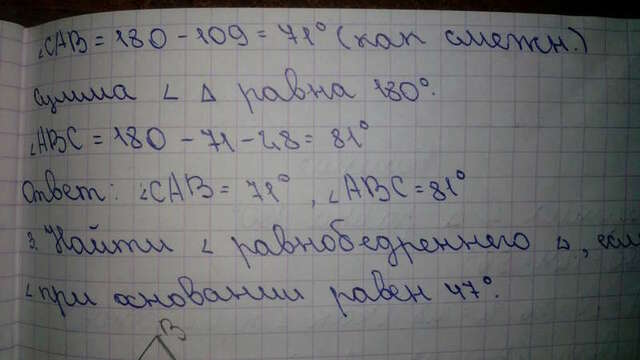 ∠CAB = 180 - 109 = 71° (как смежн.)
Сумма ∠ △ равна 180°.
∠ABC = 180 - 71 - 28 = 81°
Ответ: ∠CAB = 71°, ∠ABC = 81°
3. Найти ∠ равнобедреннего △, если
∠ при основании равен 47°.
B